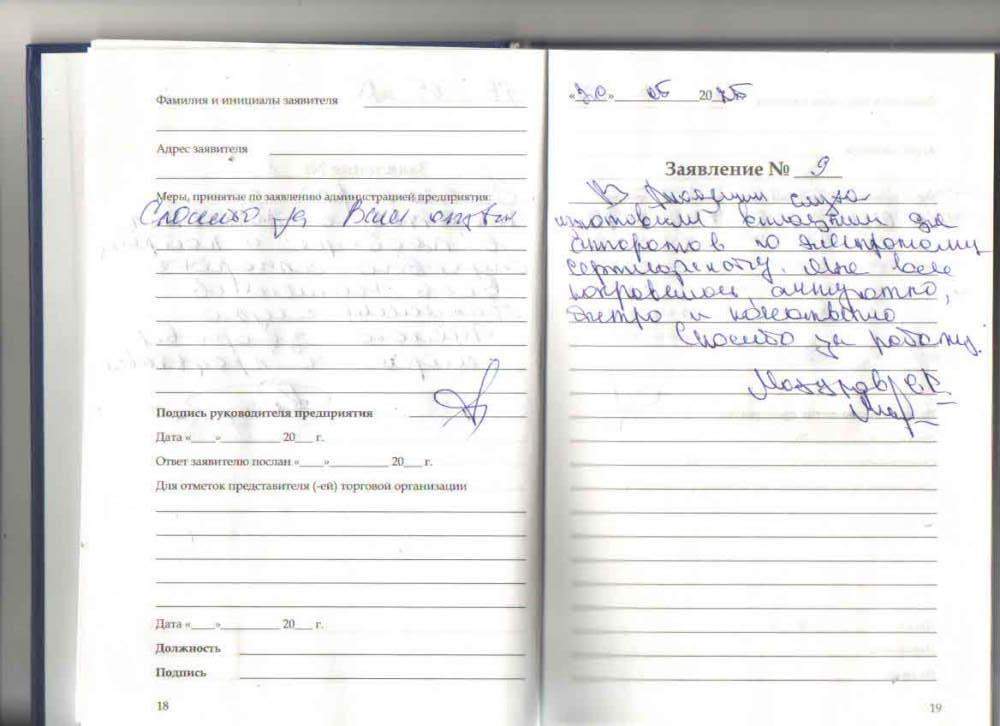 Фамилия и инициалы заявителя
Адрес заявителя
Меры, принятые по заявлению администрацией предприятия:
Спасибо за Ваш отзыв
Подпись руководителя предприятия
Дата «___»__________ 20___ г.
Ответ заявителю послан «___»__________ 20___ г.
Для отметок представителя (-ей) торговой организации
Дата «___»__________ 20___ г.
Должность
Подпись
18
«30» 05 20
Заявление № 9
В
изготовили для
по электронному
сертификату. Мне все
понравилось, аккуратно,
быстро и качественно
Спасибо за работу.
19